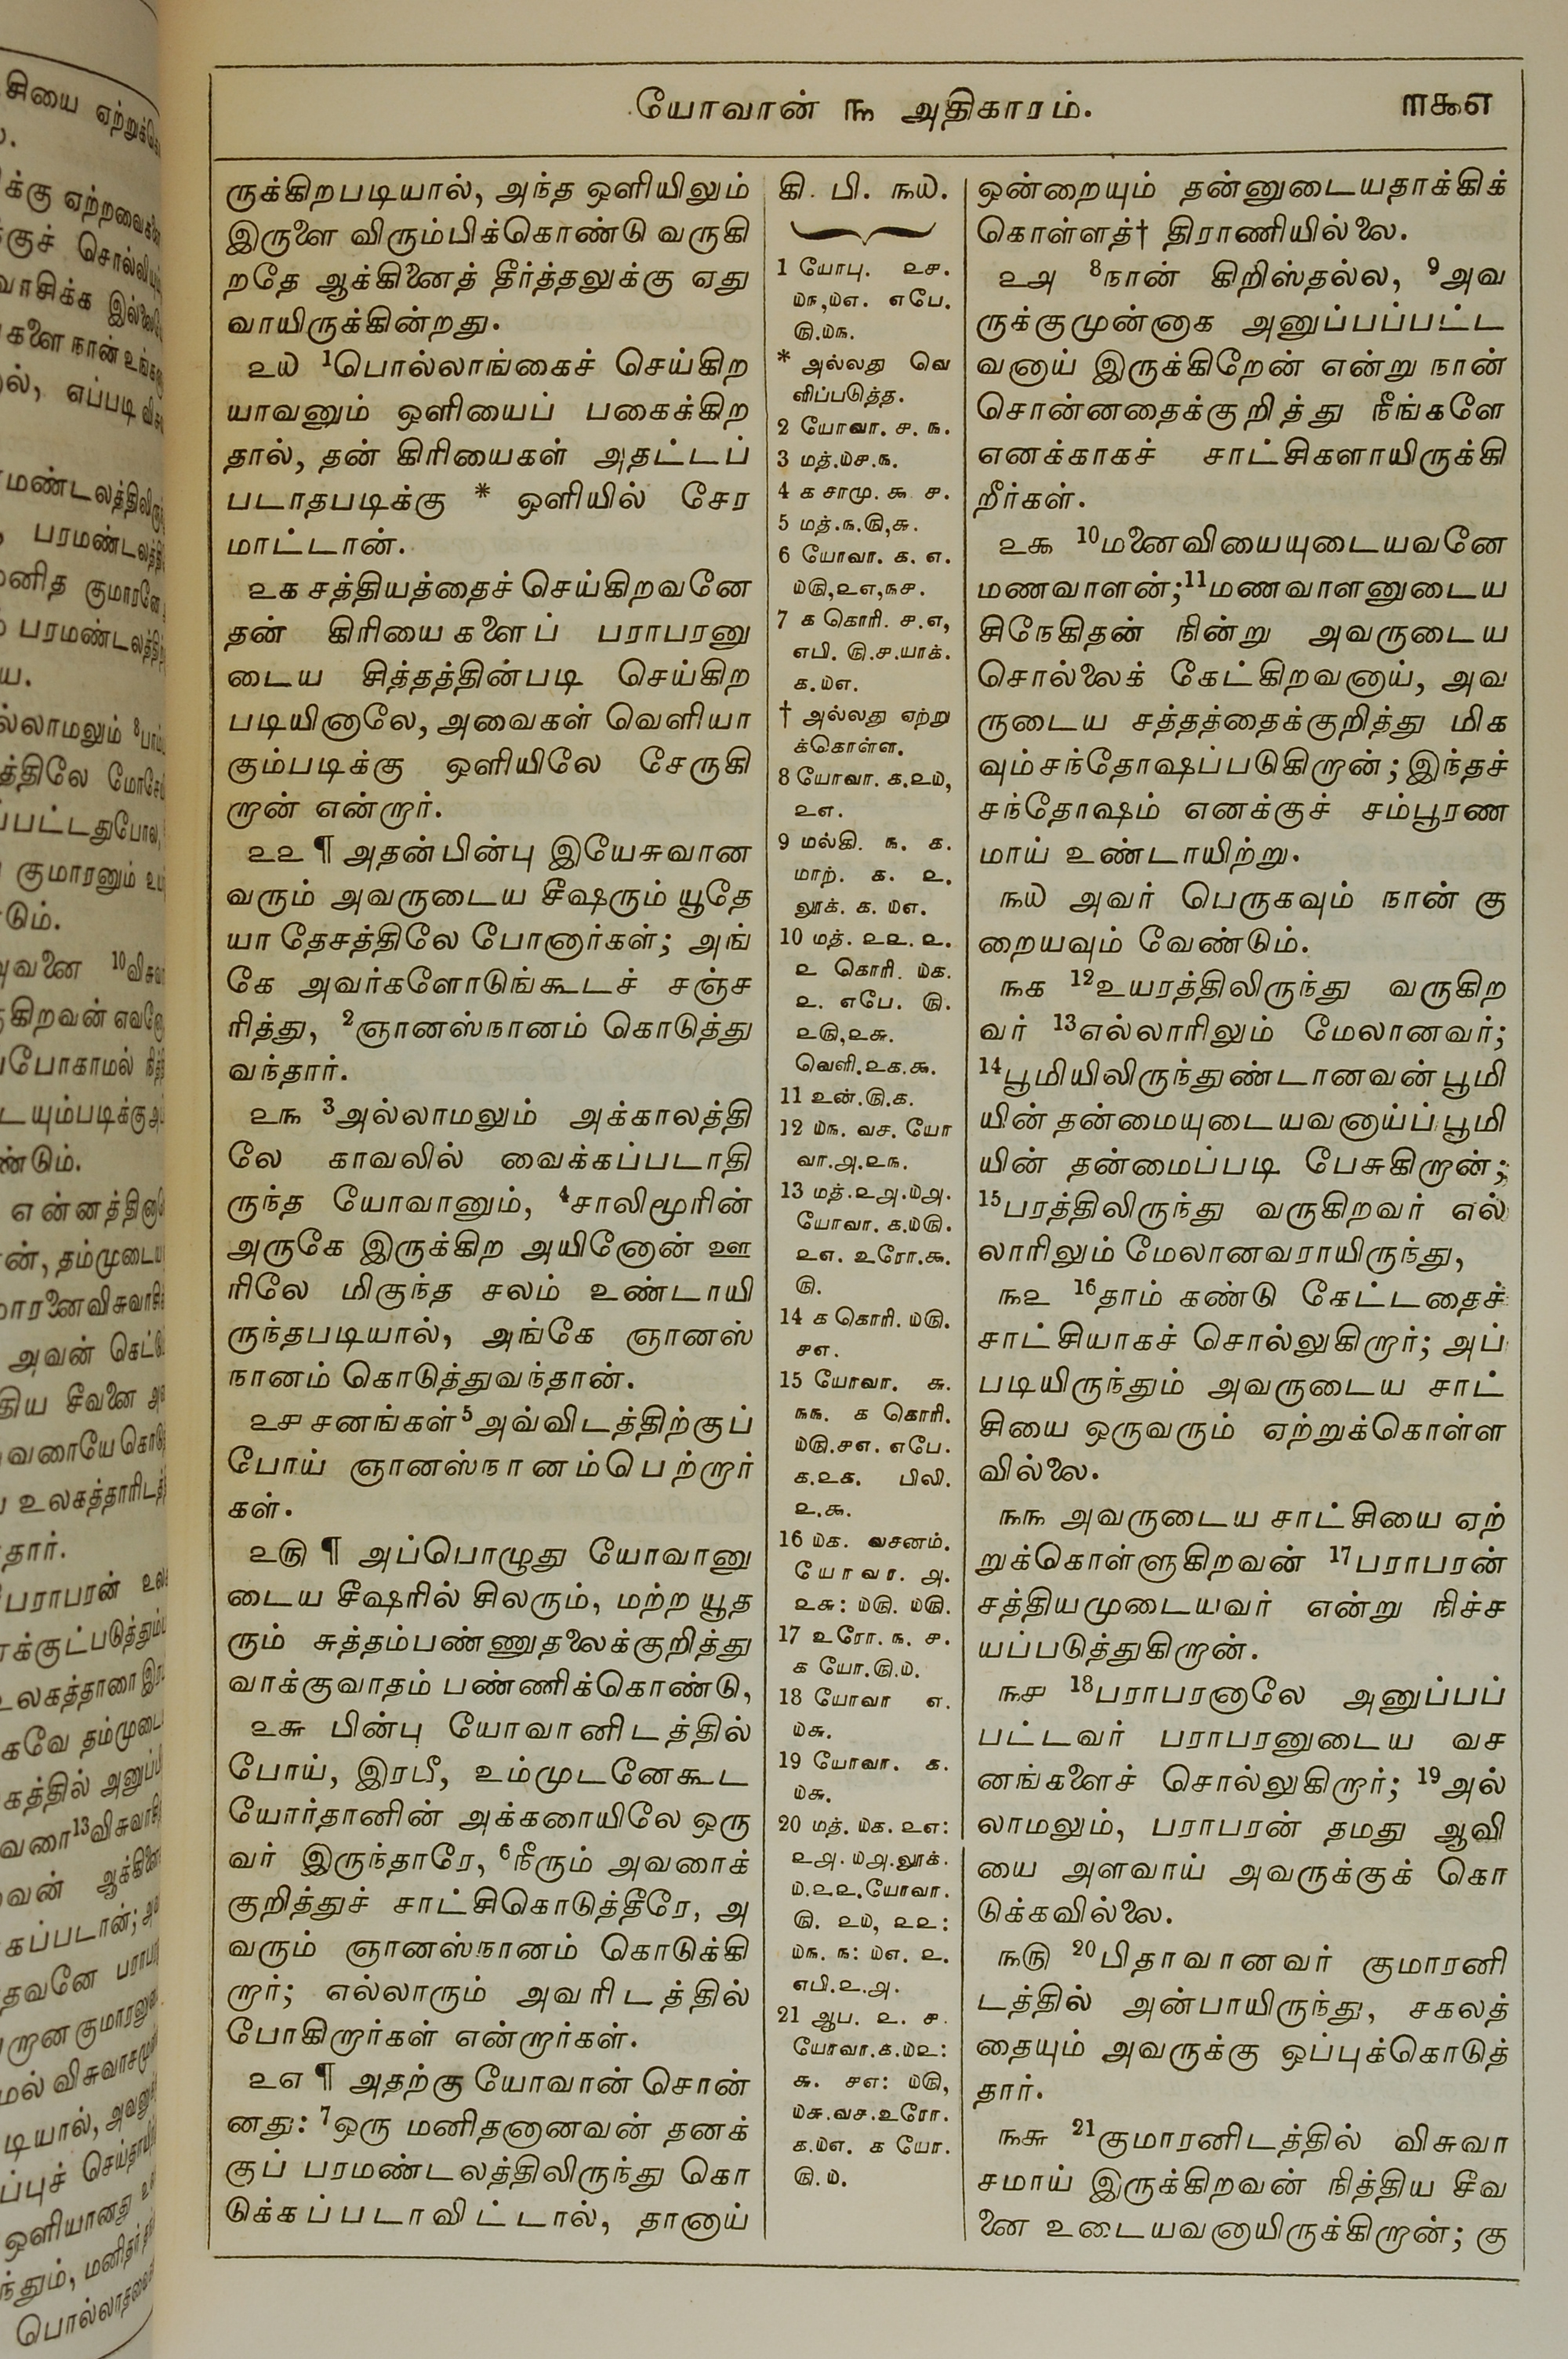 யோவான் ௩ அதிகாரம்.
௱௬௭
ருக்கிறபடியால், அந்த ஒளியிலும்
இருளை விரும்பிக்கொண்டு வருகி
றதே ஆக்கினைத் தீர்த்தலுக்கு ஏது
வாயிருக்கின்றது.
௨௰ ¹பொல்லாங்கைச் செய்கிற
யாவனும் ஒளியைப் பகைக்கிற
தால், தன் கிரியைகள் அதட்டப்
படாதபடிக்கு * ஒளியில் சேர
மாட்டான்.
௨௧ சத்தியத்தைச் செய்கிறவனே
தன் கிரியைகளைப் பராபரனு
டைய சித்தத்தின்படி செய்கிற
படியினாலே, அவைகள் வெளியா
கும்படிக்கு ஒளியிலே சேருகி
றான் என்றார்.
௨௨ ¶ அதன்பின்பு இயேசுவான
வரும் அவருடைய சீஷரும் யூதே
யா தேசத்திலே போனார்கள்; அங்
கே அவர்களோடுங்கூடச் சஞ்ச
ரித்து, ²ஞானஸ்நானம் கொடுத்து
வந்தார்.
௨௩ ³அல்லாமலும் அக்காலத்தி
லே காவலில் வைக்கப்படாதி
ருந்த யோவானும், ⁴சாலிமூரின்
அருகே இருக்கிற அயினோன் ஊ
ரிலே மிகுந்த சலம் உண்டாயி
ருந்தபடியால், அங்கே ஞானஸ்
நானம் கொடுத்துவந்தான்.
௨௪ சனங்கள் ⁵அவ்விடத்திற்குப்
போய் ஞானஸ்நானம்பெற்றார்
கள்.
௨௫ ¶ அப்பொழுது யோவானு
டைய சீஷரில் சிலரும், மற்ற யூத
ரும் சுத்தம்பண்ணுதலைக்குறித்து
வாக்குவாதம் பண்ணிக்கொண்டு,
௨௬ பின்பு யோவானிடத்தில்
போய், இரபீ, உம்முடனேகூட
யோர்தானின் அக்கரையிலே ஒரு
வர் இருந்தாரே, ⁶நீரும் அவரைக்
குறித்துச் சாட்சிகொடுத்தீரே, அ
வரும் ஞானஸ்நானம் கொடுக்கி
றார்; எல்லாரும் அவரிடத்தில்
போகிறார்கள் என்றார்கள்.
௨௭ ¶ அதற்கு யோவான் சொன்
னது: ⁷ஒரு மனிதனானவன் தனக்
குப் பரமண்டலத்திலிருந்து கொ
டுக்கப்படாவிட்டால், தானாய்
கி. பி. ௩௰.
1 யோபு. ௨௪.
௰௩,௰௭. எபே.
௫.௰௩.
* அல்லது வெ
ளிப்படுத்த.
2 யோவா. ௪. ௩.
3 மத்.௰௪.௩.
4 ௧ சாமு. ௯ ௪.
5 மத்.௩.௫,௬.
6 யோவா. ௧. ௭.
௰௫,௨௭,௩௪.
7 ௧ கொரி. ௪.௭,
எபி. ௫.௪.யாக்.
௧.௰௭.
† அல்லது ஏற்று
க்கொள்ள.
8 யோவா. ௧.௨௰,
௨௭.
9 மல்கி. ௩. ௧.
மாற். ௧. ௨.
லூக். ௧. ௰௭.
10 மத். ௨௨. ௨.
௨ கொரி. ௰௧.
௨. எபே. ௫.
௨௫,௨௬.
வெளி.௨௧.௯.
11 உன்.௫.௧.
12 ௰௩. வச. யோ
வா.௮.௨௩.
13 மத்.௨௮.௰௮.
யோவா. ௧.௰௫.
௨௭. உரோ.௯.
௫.
14 ௧ கொரி. ௰௫.
௪௭.
15 யோவா. ௬.
௩௩. ௧ கொரி.
௰௫.௪௭. எபே.
௧.௨௧. பிலி.
௨.௯.
16 ௰௧. வசனம்.
யோவா. ௮.
௨௬: ௰௫. ௰௫.
17 உரோ. ௩. ௪.
௧ யோ.௫.௰.
18 யோவா ௭.
௰௬.
19 யோவா. ௧.
௰௬.
20 மத். ௰௧. ௨௭:
௨௮. ௰௮.லூக்.
௰.௨௨.யோவா.
௫. ௨௰, ௨௨:
௰௩. ௩: ௰௭. ௨.
எபி.௨.௮.
21 ஆப. ௨. ௪.
யோவா.௧.௰௨:
௬. ௪௭: ௰௫,
௰௬.வச.உரோ.
௧.௰௭. ௧ யோ.
௫.௰.
ஒன்றையும் தன்னுடையதாக்கிக்
கொள்ளத்† திராணியில்லை.
௨௮ ⁸நான் கிறிஸ்தல்ல, ⁹அவ
ருக்குமுன்னாக அனுப்பப்பட்ட
வனாய் இருக்கிறேன் என்று நான்
சொன்னதைக்குறித்து நீங்களே
எனக்காகச் சாட்சிகளாயிருக்கி
றீர்கள்.
௨௯ ¹⁰மனைவியையுடையவனே
மணவாளன்; ¹¹மணவாளனுடைய
சிநேகிதன் நின்று அவருடைய
சொல்லைக் கேட்கிறவனாய், அவ
ருடைய சத்தத்தைக்குறித்து மிக
வும்சந்தோஷப்படுகிறான்; இந்தச்
சந்தோஷம் எனக்குச் சம்பூரண
மாய் உண்டாயிற்று.
௩௰ அவர் பெருகவும் நான் கு
றையவும் வேண்டும்.
௩௧ ¹²உயரத்திலிருந்து வருகிற
வர் ¹³எல்லாரிலும் மேலானவர்;
¹⁴பூமியிலிருந்துண்டானவன் பூமி
யின் தன்மையுடையவனாய்ப் பூமி
யின் தன்மைப்படி பேசுகிறான்;
¹⁵பரத்திலிருந்து வருகிறவர் எல்
லாரிலும் மேலானவராயிருந்து,
௩௨ ¹⁶தாம் கண்டு கேட்டதைச்
சாட்சியாகச் சொல்லுகிறார்; அப்
படியிருந்தும் அவருடைய சாட்
சியை ஒருவரும் ஏற்றுக்கொள்ள
வில்லை.
௩௩ அவருடைய சாட்சியை ஏற்
றுக்கொள்ளுகிறவன் ¹⁷பராபரன்
சத்தியமுடையவர் என்று நிச்ச
யப்படுத்துகிறான்.
௩௪ ¹⁸பராபரனாலே அனுப்பப்
பட்டவர் பராபரனுடைய வச
னங்களைச் சொல்லுகிறார்; ¹⁹அல்
லாமலும், பராபரன் தமது ஆவி
யை அளவாய் அவருக்குக் கொ
டுக்கவில்லை.
௩௫ ²⁰பிதாவானவர் குமாரனி
டத்தில் அன்பாயிருந்து, சகலத்
தையும் அவருக்கு ஒப்புக்கொடுத்
தார்.
௩௬ ²¹குமாரனிடத்தில் விசுவா
சமாய் இருக்கிறவன் நித்திய சீவ
னை உடையவனாயிருக்கிறான்; கு